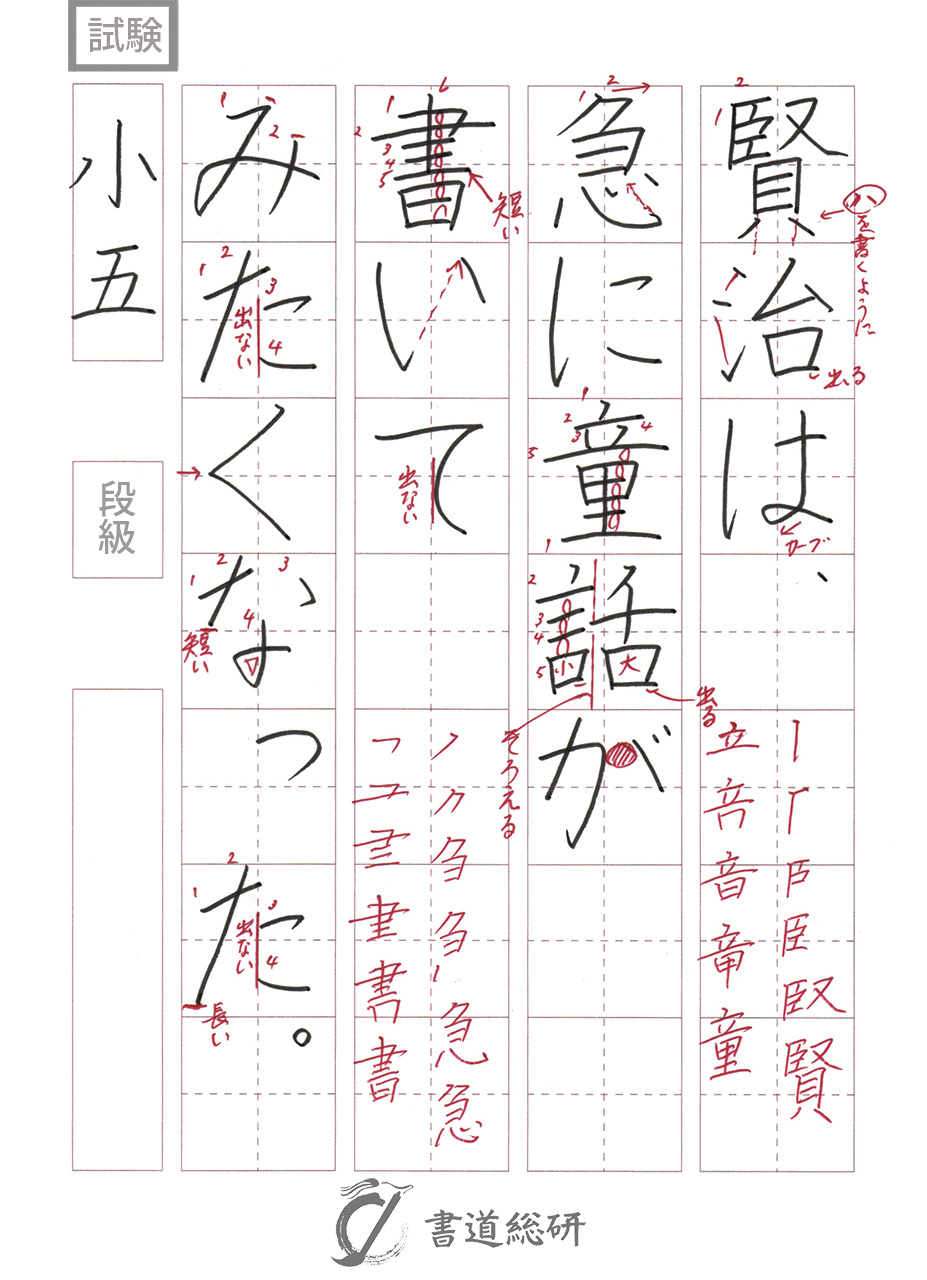 試験
賢治は、
急に童話が
書いて
みたくなった。
小五
段級
ハを書くように
出る
カーブ
出る
そろえる
小
大
短い
出ない
出ない
短い
出ない
長い
立音童
臣賢
急急
書書
書道総研